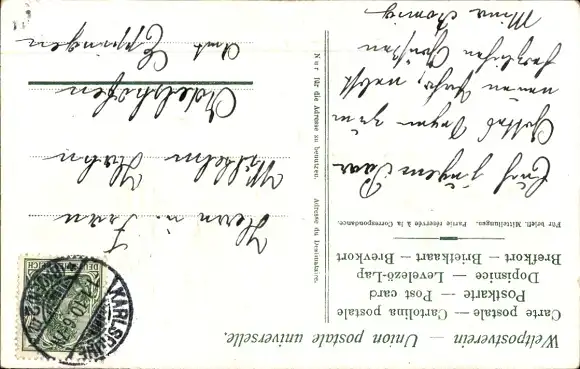 Weltpostverein — Union postale universelle.
Carte postale — Cartolina postale
Postkarte — Post card
Dopisnice — Levelező-Lap
Brefkort — Briefkaart — Brevkort
Für briefl. Mitteilungen. Partie réservée à la Correspondance.
Euch jungem Paar
Gottes Segen zum
neuen Jahr, nebst
herzlichen Grüßen
Mina
Nur für die Adresse zu benutzen. Adresse du Destinataire.
KARLSRUHE
DEUTSCHES REICH
Herrn u. Frau
Wilhelm Hahn
Adelshofen
Amt Eppingen